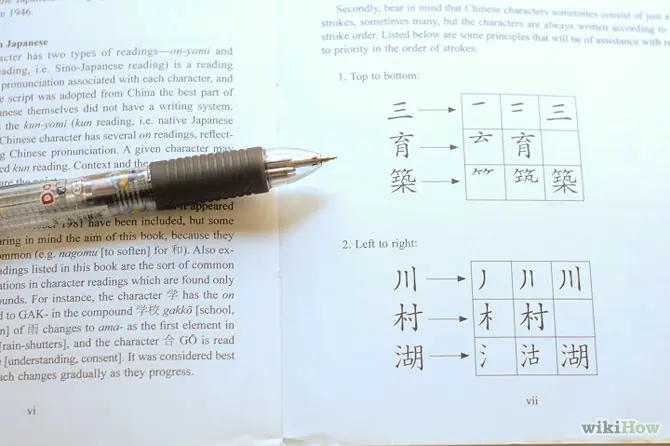 e 1946.
Japanese
acter has two types of readings—on-yomi and
eading, i.e. Sino-Japanese reading) is a reading
pronunciation associated with each character, and
e script was adopted from China the best part of
anese themselves did not have a writing system.
the kun-yomi (kun reading, i.e. native Japanese
Chinese character has several on readings, reflect-
ng Chinese pronunciation. A given character may
ed kun reading. Context and the
it appeared
1981 have been included, but some
aring in mind the aim of this book, because they
ommon (e.g. nagomu [to soften] for 和). Also ex-
adings listed in this book are the sort of common
ations in character readings which are found only
ounds. For instance, the character 学 has the on
d to GAK- in the compound 学校 gakkō [school,
n] of 雨 changes to ama- as the first element in
[rain-shutters], and the character 合 GŌ is read
[understanding, consent]. It was considered best
uch changes gradually as they progress.
vi
Secondly, bear in mind that Chinese characters sometimes consist of just a
strokes, sometimes many, but the characters are always written according to
stroke order. Listed below are some principles that will be of assistance with re
to priority in the order of strokes.
1. Top to bottom:
三 → 一 二 三
育 → 𠫓 育
築 → 𥫗 筑 築
2. Left to right:
川 → 丿 川
村 → 木 村
湖 → 氵 沽 湖
vii
wikiHow